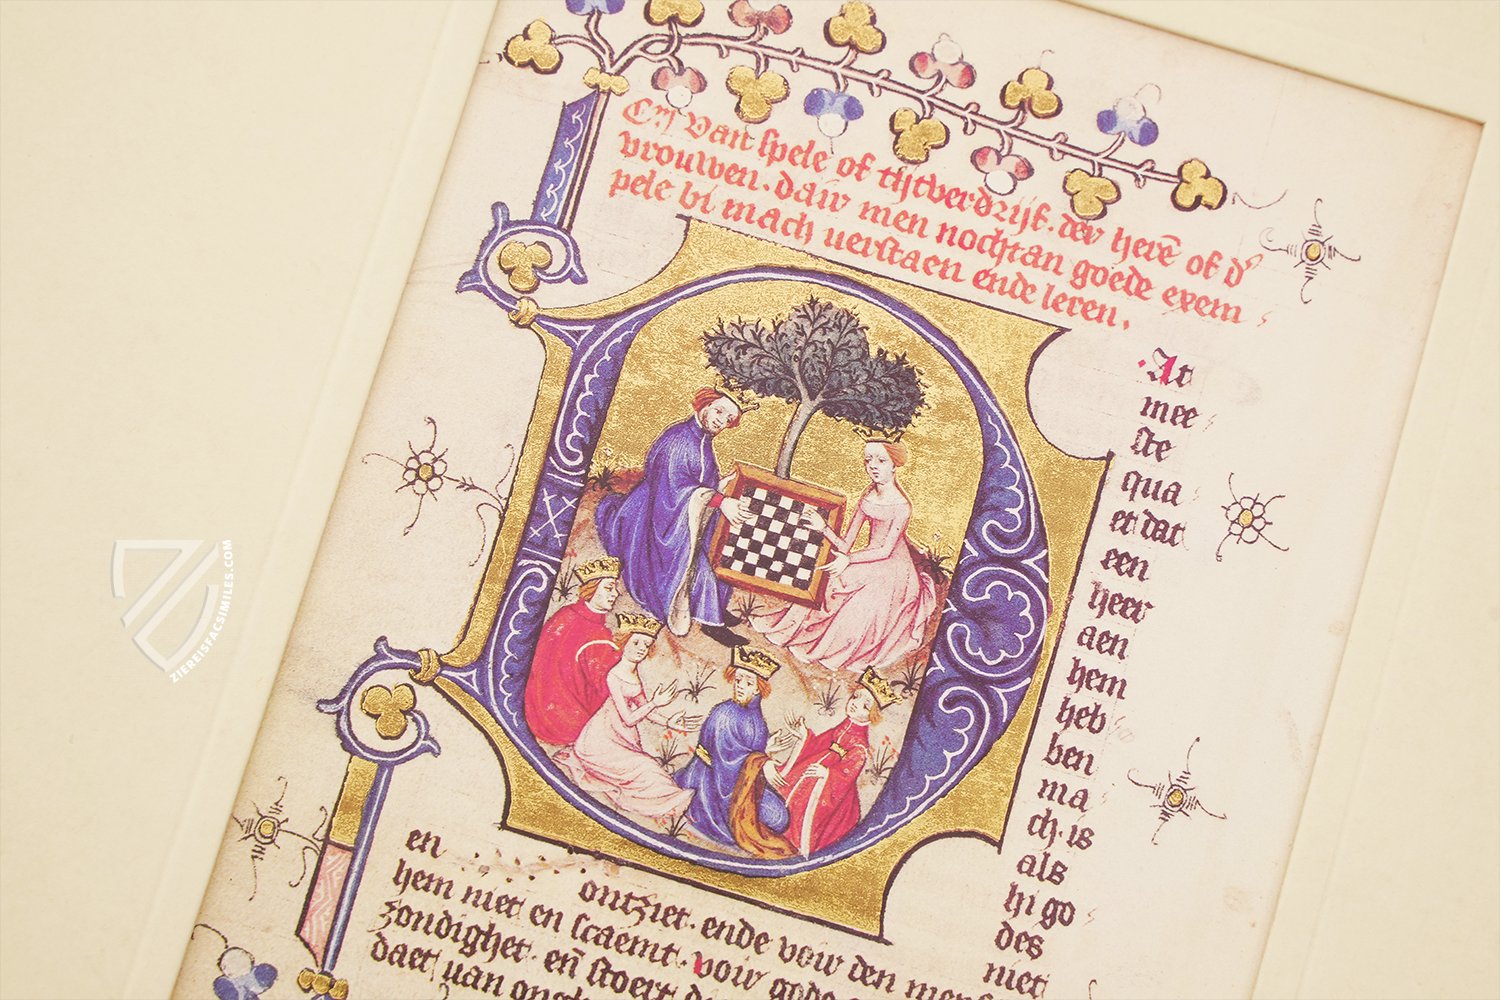 Een Van spele of tijtverdrijf. der herē of d'
vrouwen. dair men nochtan goede exem
pele bi mach verstaen ende leren.
At
mee
ste
qua
et dat
een
heer
aen
hem
heb
ben
ma
ch. is
als
hi go
des
niet
en ontziet. ende voir den mens
hem niet en scaemt. voir gode
zondighet. en̄ stoert
daer van
ZIEREISFACSIMILES.COM